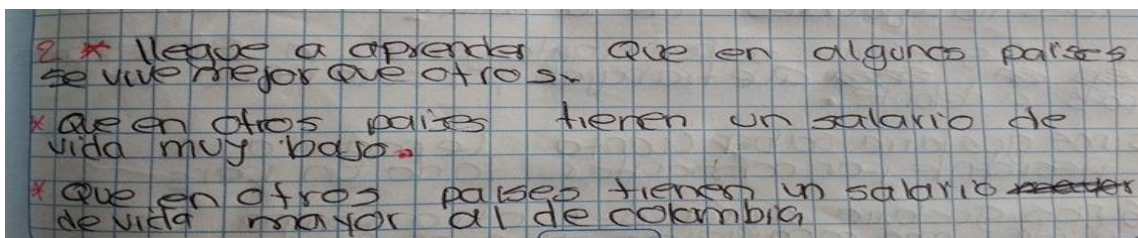 2 * llegue a aprender que en algunos paises
se vive mejor que otros.
* Que en otros paises tienen un salario de
vida muy bajo.
* Que en otros paises tienen un salario
de vida mayor al de colombia